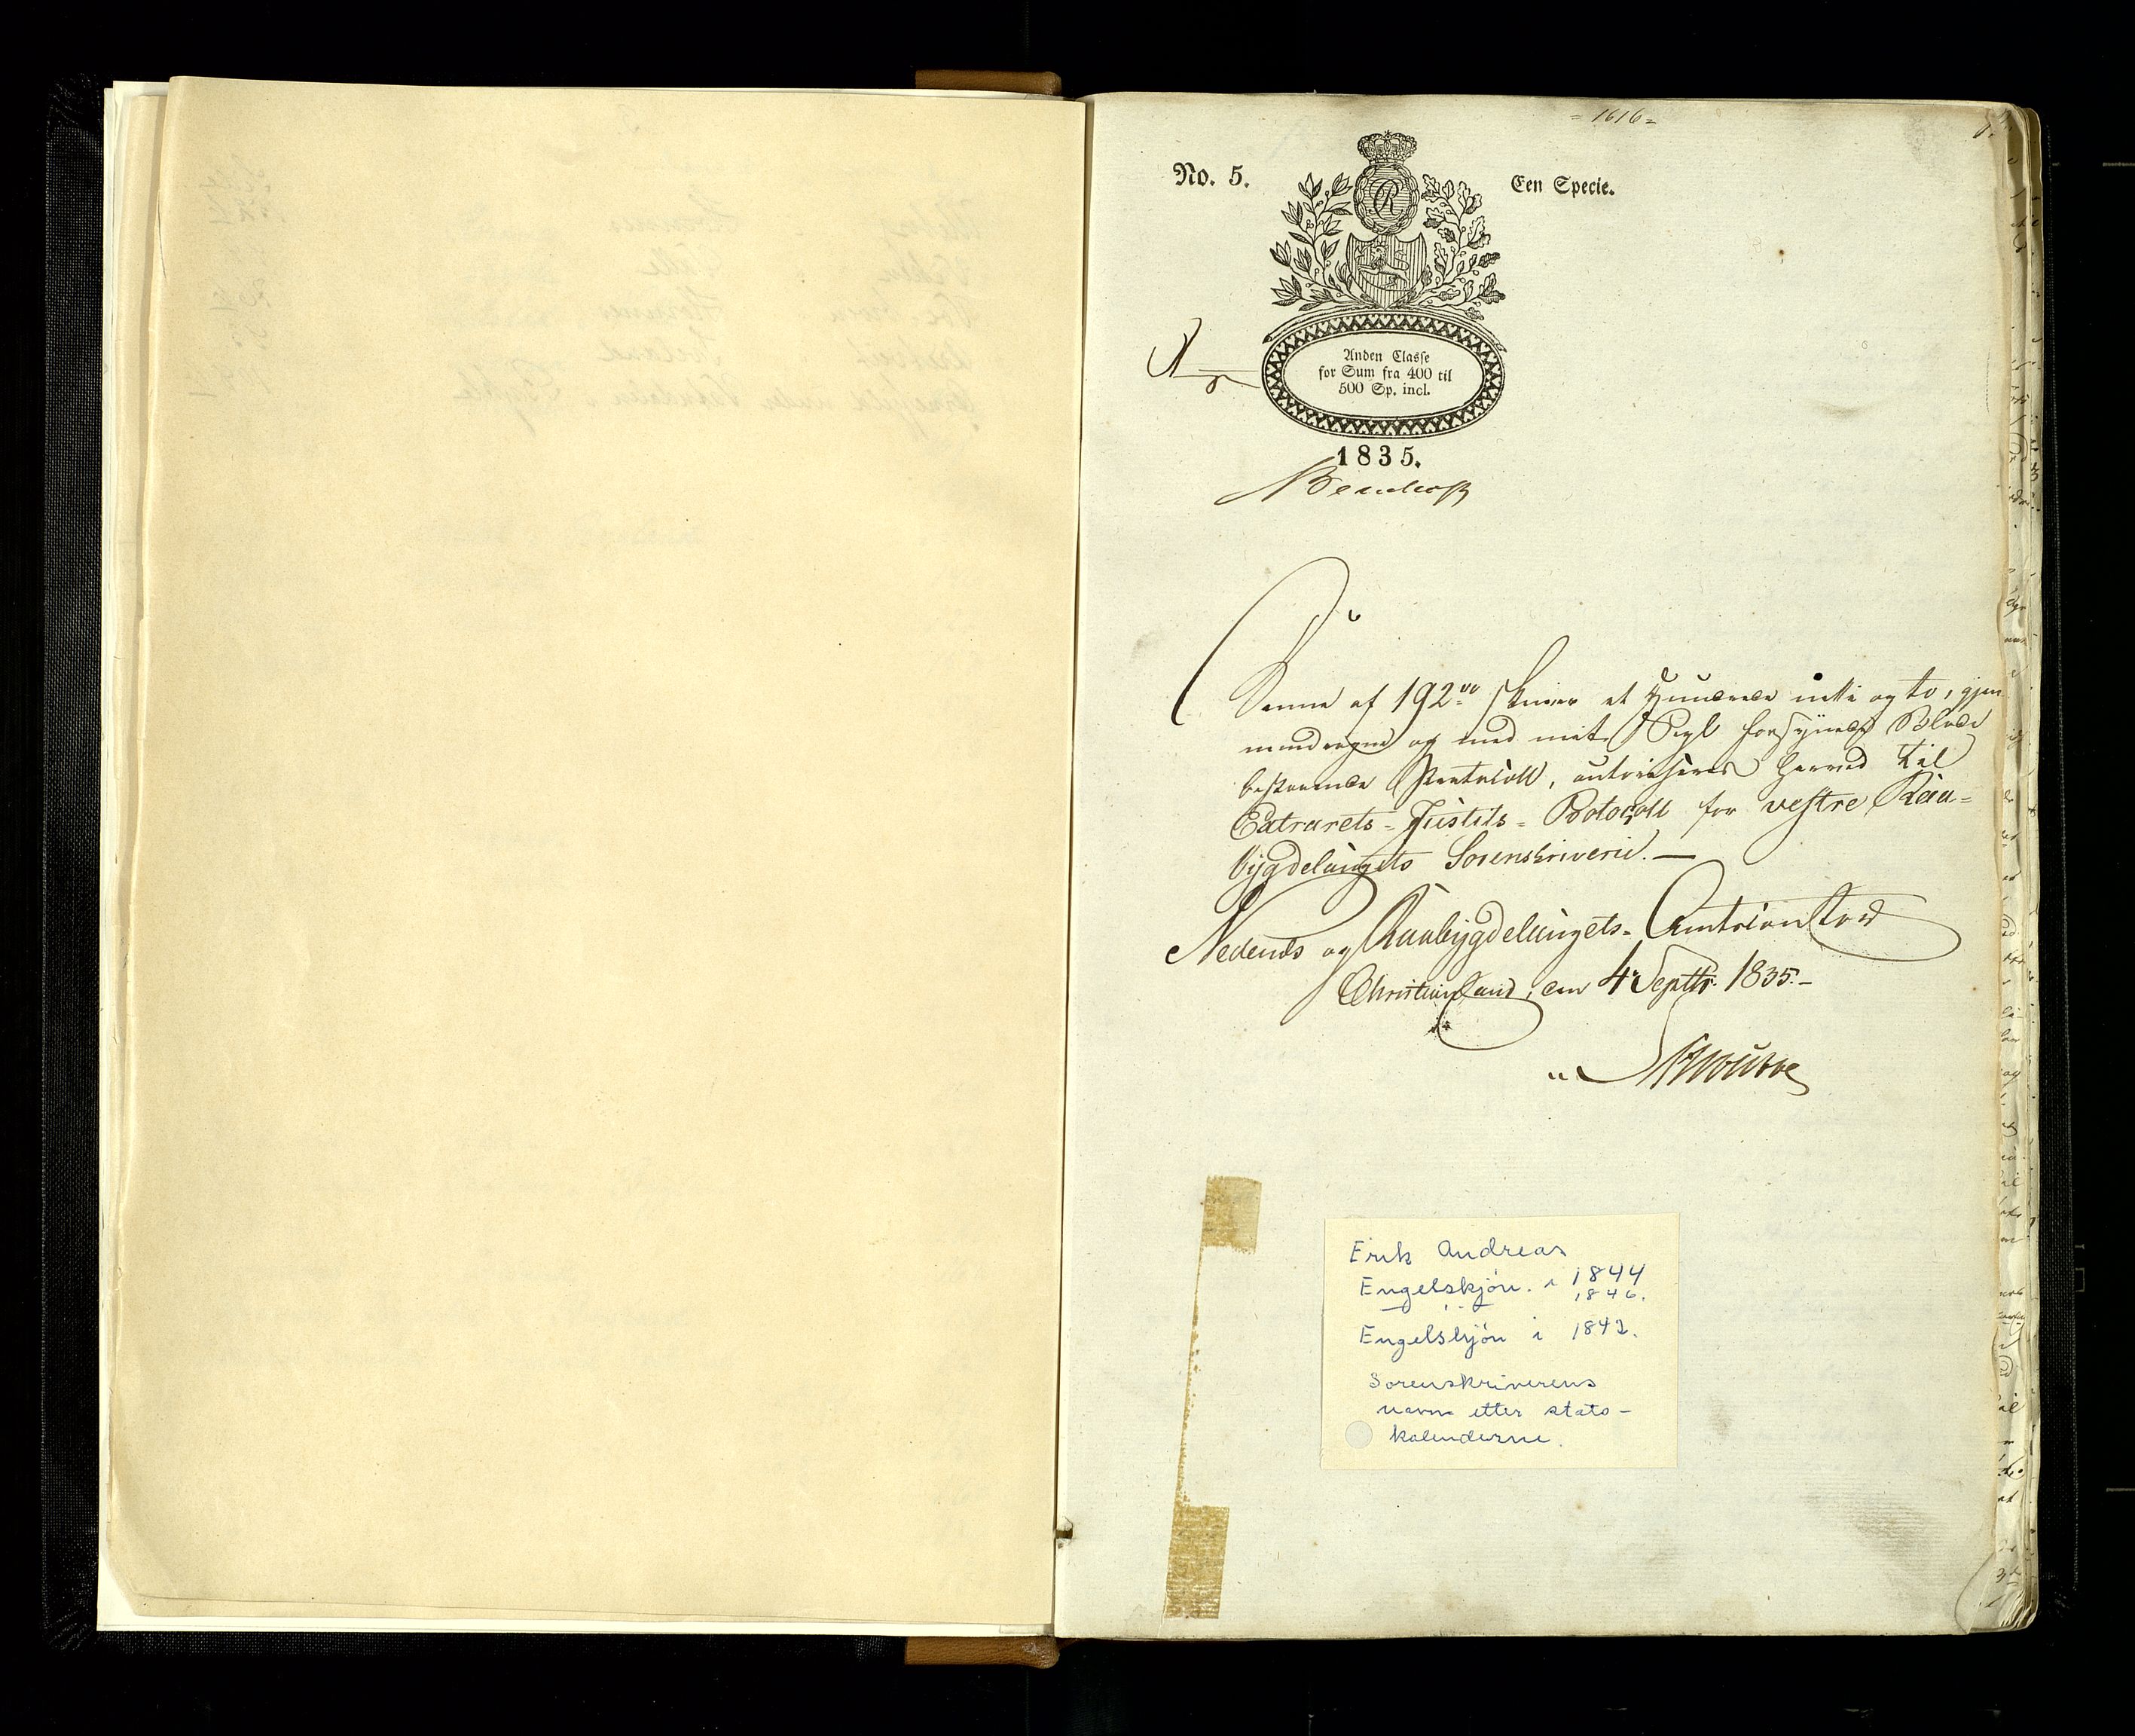 = 1616 =
No. 5.
Een Specie.
Anden Classe
for Sum fra 400 til
500 Sp. incl.
1835.
Denne af 192 skriver et Hundrede nitti og to, gjen
nemdragne og med mit Segl forsynede Blade
bestaaende Protocoll, autoriseres herved til
Extrarets-Justits-Protocoll for vestre Raa=
bygdelaugets Sorenskriverie. —
Nedenes og Raabygdelaugets- Amtscontor
Christiansand, den 4 Septbr. 1835. -
Erik Andreas
Engelskjön. i 1844
1846.
Engelskjön i 1842.
Sorenskriverens
navn etter stats-
kalenderne.